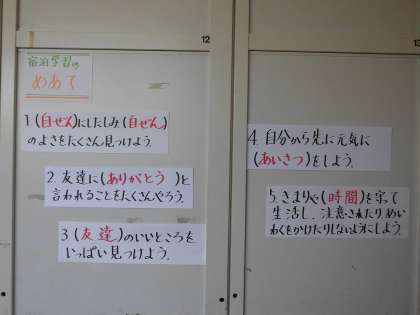 12
宿泊学習の
めあて
1.(自ぜん)にしたしみ(自ぜん)
のよさをたくさん見つけよう。
2.友達に(ありがとう)と
言われることをたくさんやろう。
3.(友達)のいいところを
いっぱい見つけよう。
13
4.自分から先に元気に
(あいさつ)をしよう。
5.きまりや(時間)を守って
生活し、注意されたり、めい
わくをかけたりしないようにしよう。